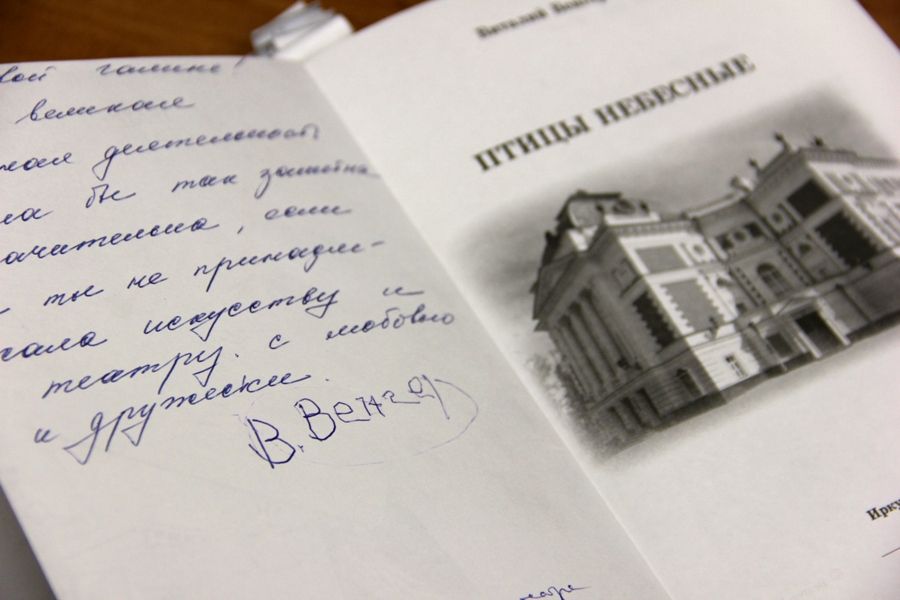 вой галине,
великая
ная деятельность
ла бы так заметна
начительна, если
ты не принадле-
жала искусству и
театру. с любовью
и дружески.
В. Венгер
Виталий Венгер
ПТИЦЫ НЕБЕСНЫЕ
Ирку